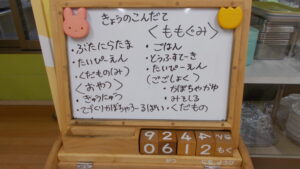 きょうのこんだて
<ももぐみ>
・ぶたにらたま
・たいぴーえん
・くだもの(み)
<おやつ>
・きゅうにゅう
・てづくりかぼちゃうーるぱい
・ごはん
・とうふすてーき
・たいぴーえん
(ごごしょく)
・かぼちゃがゆ
・みそしる
・くだもの
9 2 4
0 6 1 2 もく